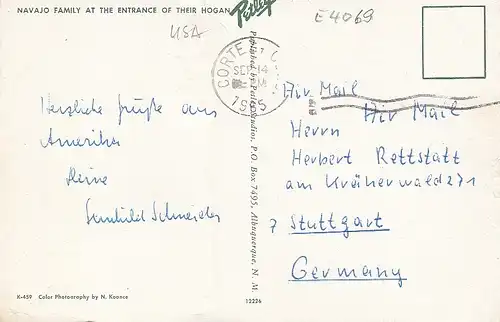 NAVAJO FAMILY AT THE ENTRANCE OF THEIR HOGAN
Petley
E4069
USA
CORTE
SEP 14
Herzliche Grüße aus
Amerika
Deine
Schneider
Published by Petley Studios, P.O. Box 7495, Albuquerque, N. M.
Air Mail
Air Mail
Herrn
Herbert Rettstatt
am Kräherwald 271
7 Stuttgart
Germany
K-459 Color Photography by N. Koonce
12226